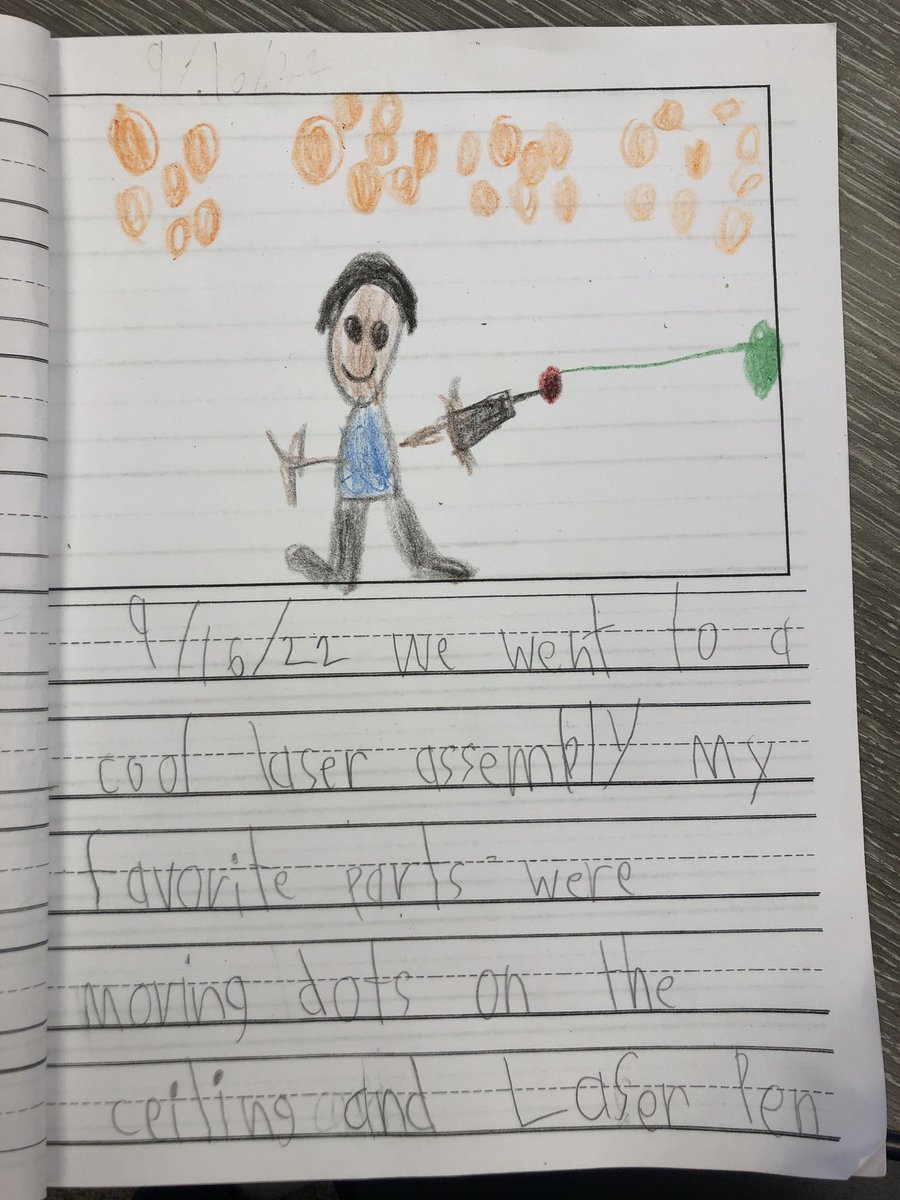 9/16/22
9/16/22 we went to a
cool laser assembly My
favorite parts were
moving dots on the
ceiling and Laser Pen